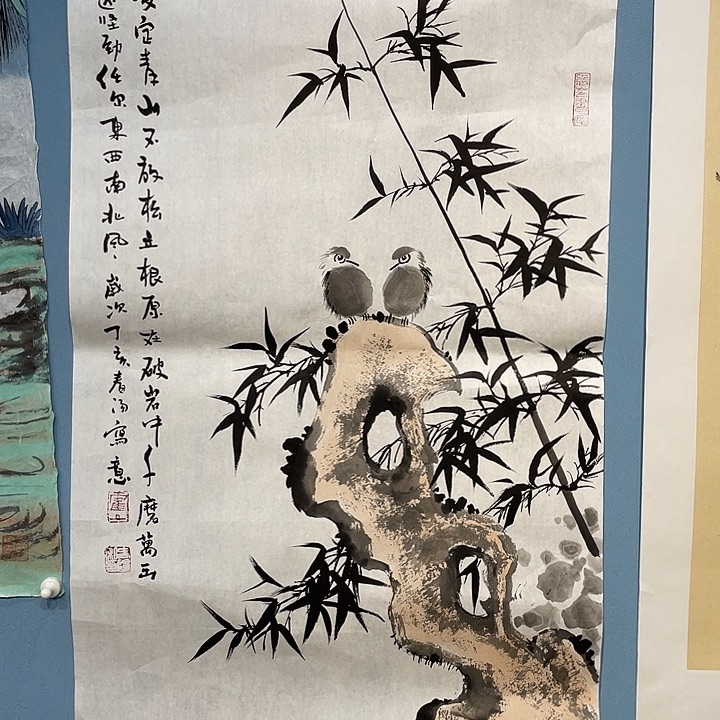 咬定青山不放松立根原在破岩中千磨萬击
还坚劲任尔東西南北风歲次丁亥春汤寫意